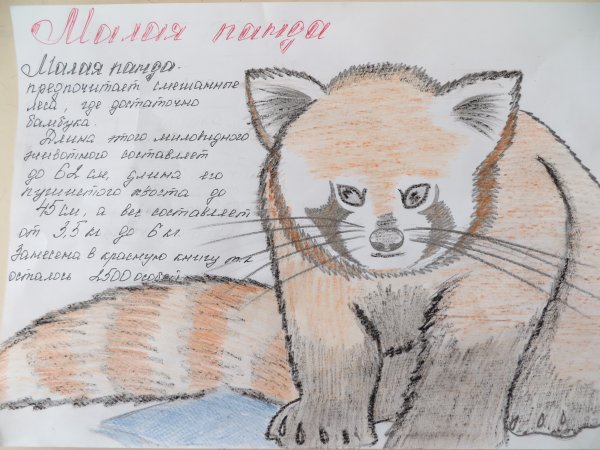 Малая панда
Малая панда-
предпочитает смешанные
леса, где достаточно
бамбука.
Длина этого миловидного
животного составляет
до 62 см, длина его
пушистого хвоста до
45 см, а вес составляет
от 3,5 кг до 6 кг.
Занесена в красную книгу т.к
осталось 2500 особей